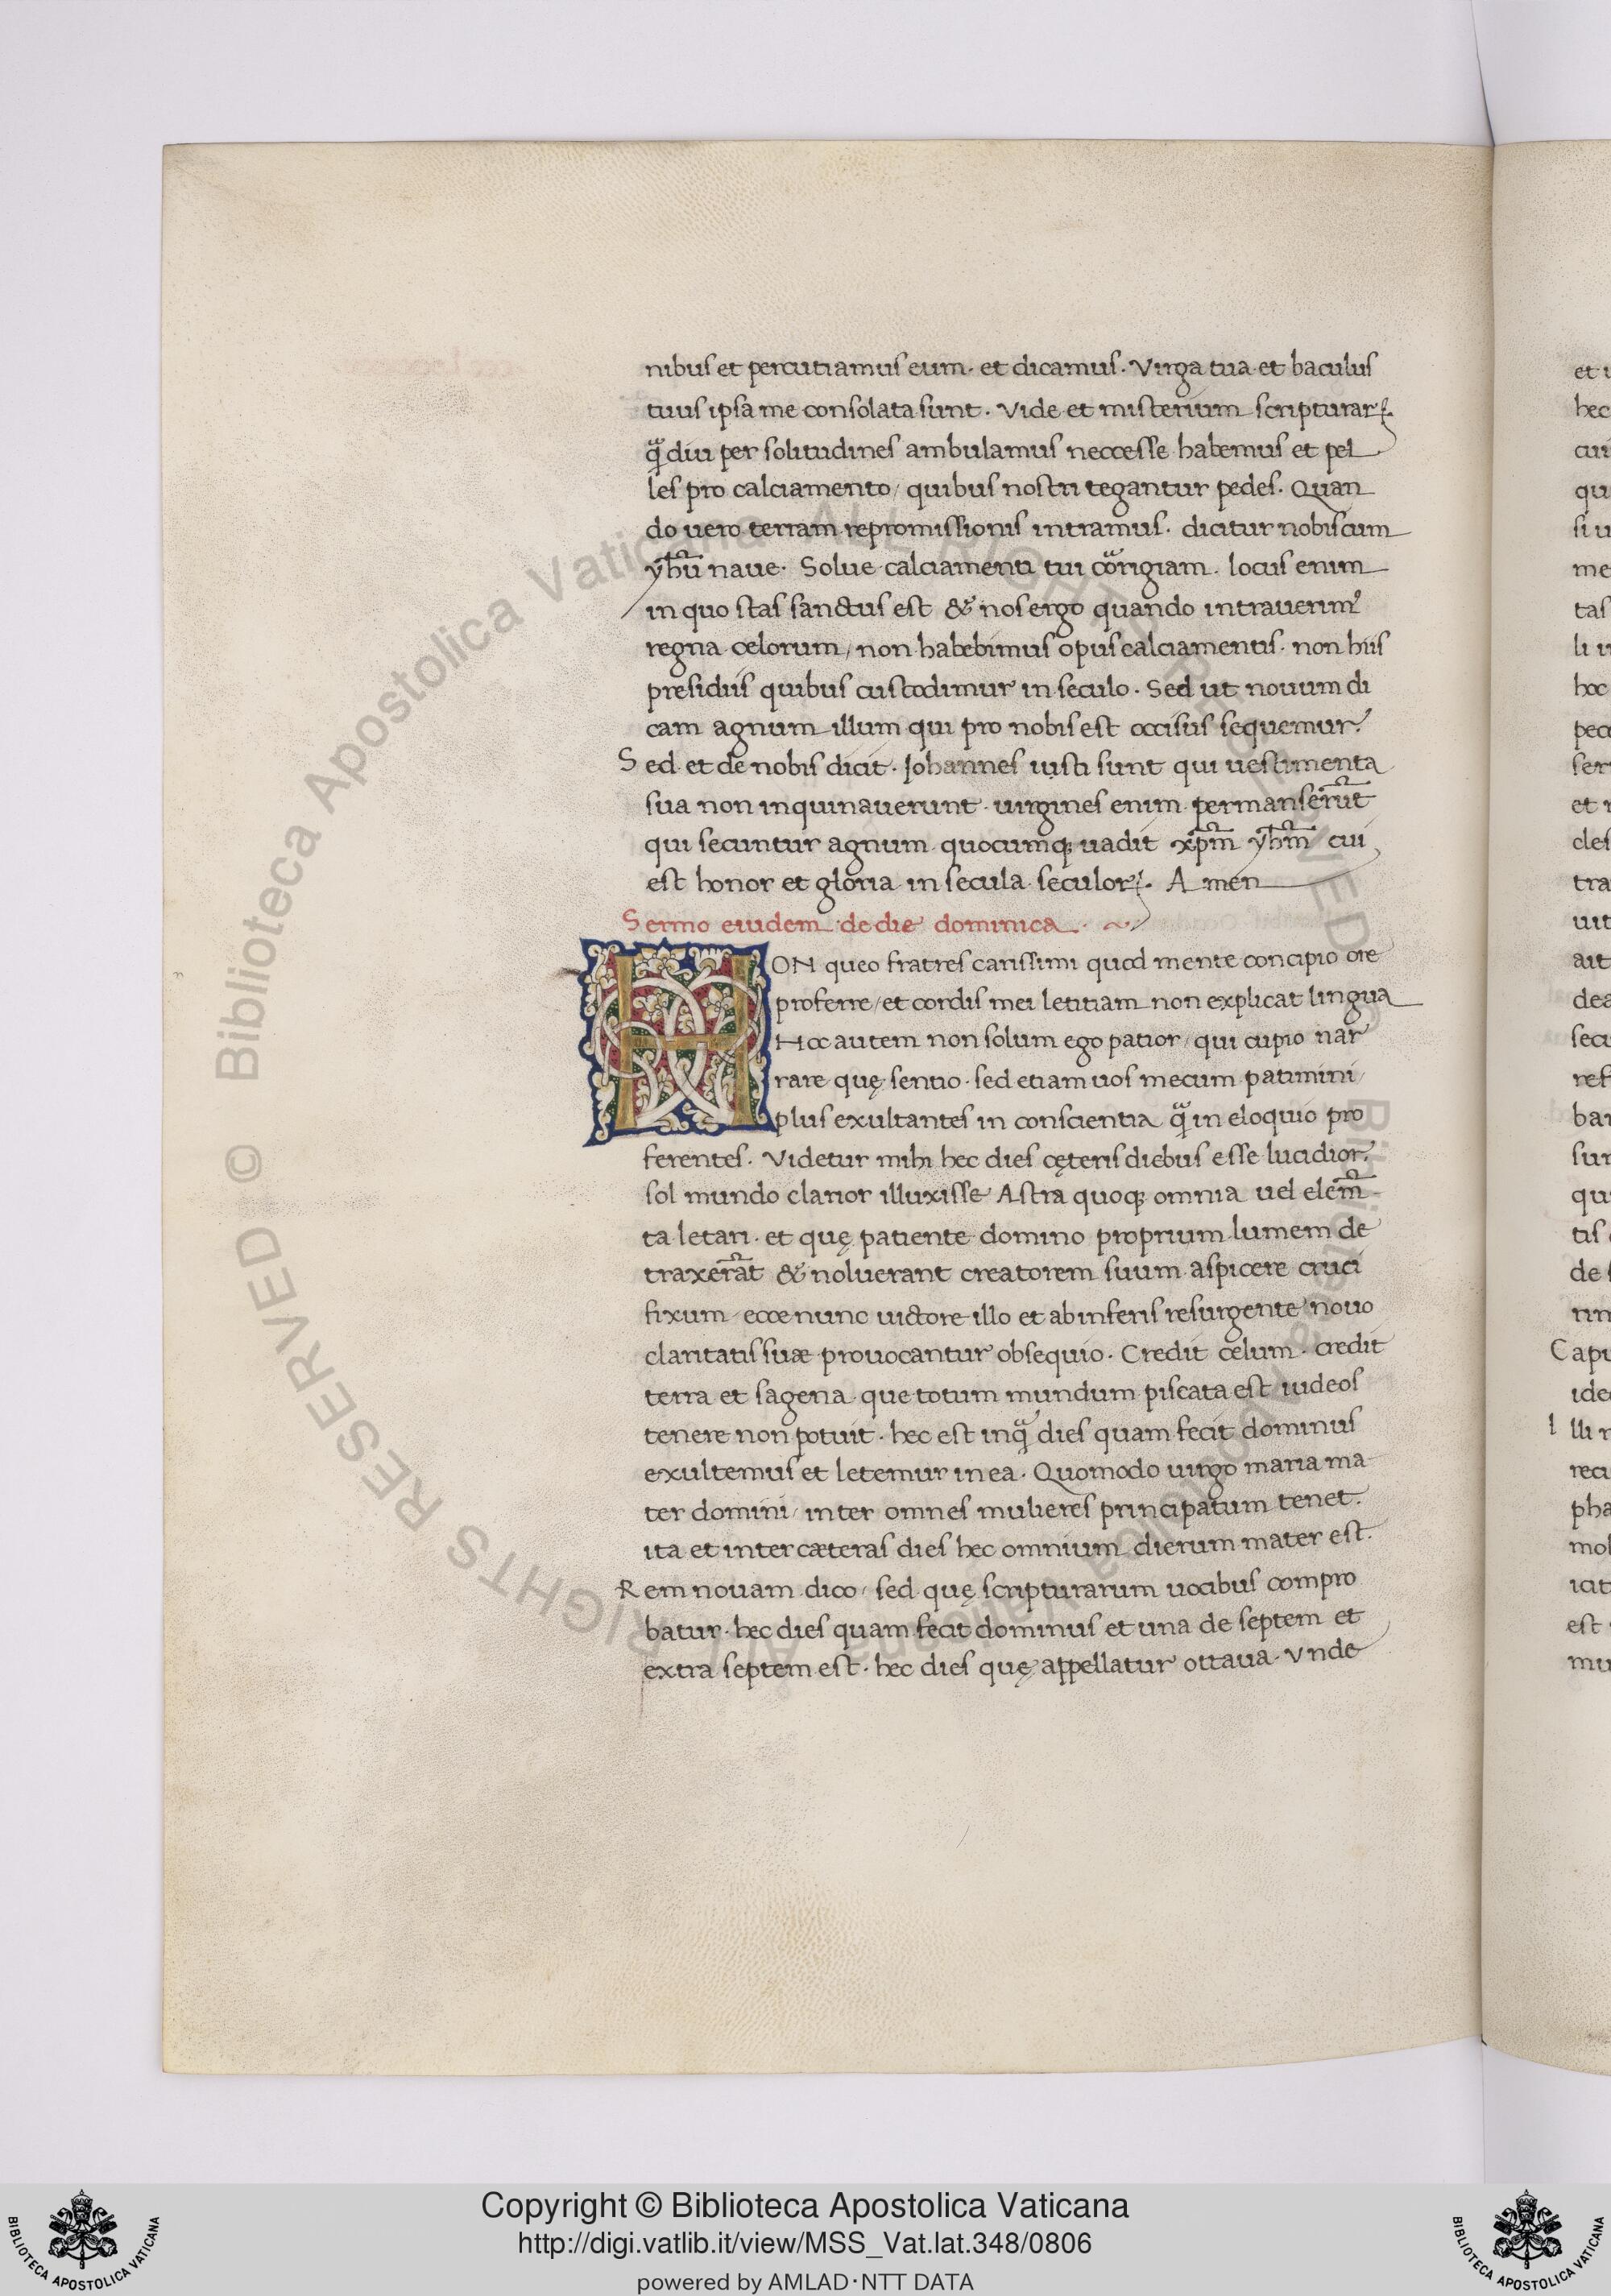 nibus et percutiamus eum. et dicamus. Virga tua et baculus
tuus ipsa me consolata sunt. Vide et misterium scripturarꝝ
qͣ̃diu per solitudines ambulamus neccesse habemus et pel
les pro calciamento / quibus nostri tegantur pedes. Quan
do uero terram repromissionis intramus. dicitur nobiscum
yhū naue. Solue calciamenti tui corrigiam. locus enim
in quo stas sanctus est & nos ergo quando intrauerimꝰ
regna celorum / non habebimus opus calciamentis. non hiis
presidiis quibus custodimur in seculo. Sed ut nouum di
cam agnum illum qui pro nobis est occisus sequemur.
Sed et de nobis dicit. Iohannes iusti sunt qui uestimenta
sua non inquinauerunt. uirgines enim permanserūt
qui secuntur agnum quocumqꝫ uadit xp̄m yhm̄ cui
est honor et gloria in secula seculorꝝ. Amen
Sermo eiudem de die dominica
NON queo fratres carissimi quod mente concipio ore
proferre / et cordis mei letitiam non explicat lingua
Hoc autem non solum ego patior / qui cupio nar
rare quę sentio. sed etiam uos mecum patimini /
plus exultantes in conscientia qͣ̃ in eloquio pro
ferentes. Videtur mihi hec dies cęteris diebus esse lucidior.
sol mundo clarior illuxisse Astra quoqꝫ omnia uel elem̄
ta letari. et quę patiente domino proprium lumem de
traxerāt & noluerant creatorem suum aspicere cruci
fixum / ecce nunc uictore illo et ab inferis resurgente nouo
claritatis suæ prouocantur obsequio. Credit celum. credit
terra et sagena que totum mundum piscata est iudeos
tenere non potuit. hec est inqͣ̃ dies quam fecit dominus
exultemus et letemur in ea. Quomodo uirgo maria ma
ter domini / inter omnes mulieres principatum tenet.
ita et inter cæteras dies hec omnium dierum mater est.
Rem nouam dico / sed quę scripturarum uocibus compro
batur. hec dies quam fecit dominus et una de septem et
extra septem est. hec dies quę appellatur ottaua. Vnde
Copyright © Biblioteca Apostolica Vaticana
http://digi.vatlib.it/view/MSS_Vat.lat.348/0806
powered by AMLAD·NTT DATA